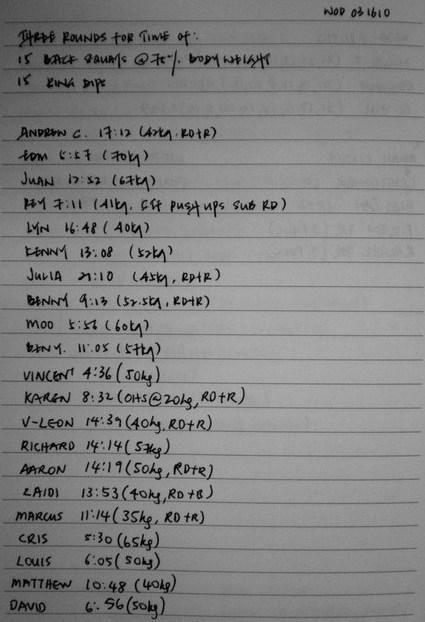 WOD 031610
THREE ROUNDS FOR TIME OF:
15 BACK SQUATS @ 75% BODY WEIGHT
15 RING DIPS
ANDREW C. 17:12 (42kg, RD+R)
EDM 5:57 (70kg)
JUAN 12:52 (67kg)
REY 7:11 (41kg, PUSH UPS SUB RD)
LYN 16:48 (40kg)
KENNY 13:08 (52kg)
JULIA 21:10 (45kg, RD+R)
BENNY 9:13 (52.5kg, RD+R)
MOO 5:56 (60kg)
BENY. 11:05 (57kg)
VINCENT 4:36 (50kg)
KAREN 8:32 (OHS@20kg, RD+R)
V-LEON 14:39 (40kg, RD+R)
RICHARD 14:14 (57kg)
AARON 14:19 (50kg, RD+R)
ZAIDI 13:53 (40kg, RD+B)
MARCUS 11:14 (35kg, RD+R)
CRIS 5:30 (65kg)
LOUIS 6:05 (50kg)
MATTHEW 10:48 (40kg)
DAVID 6:56 (50kg)